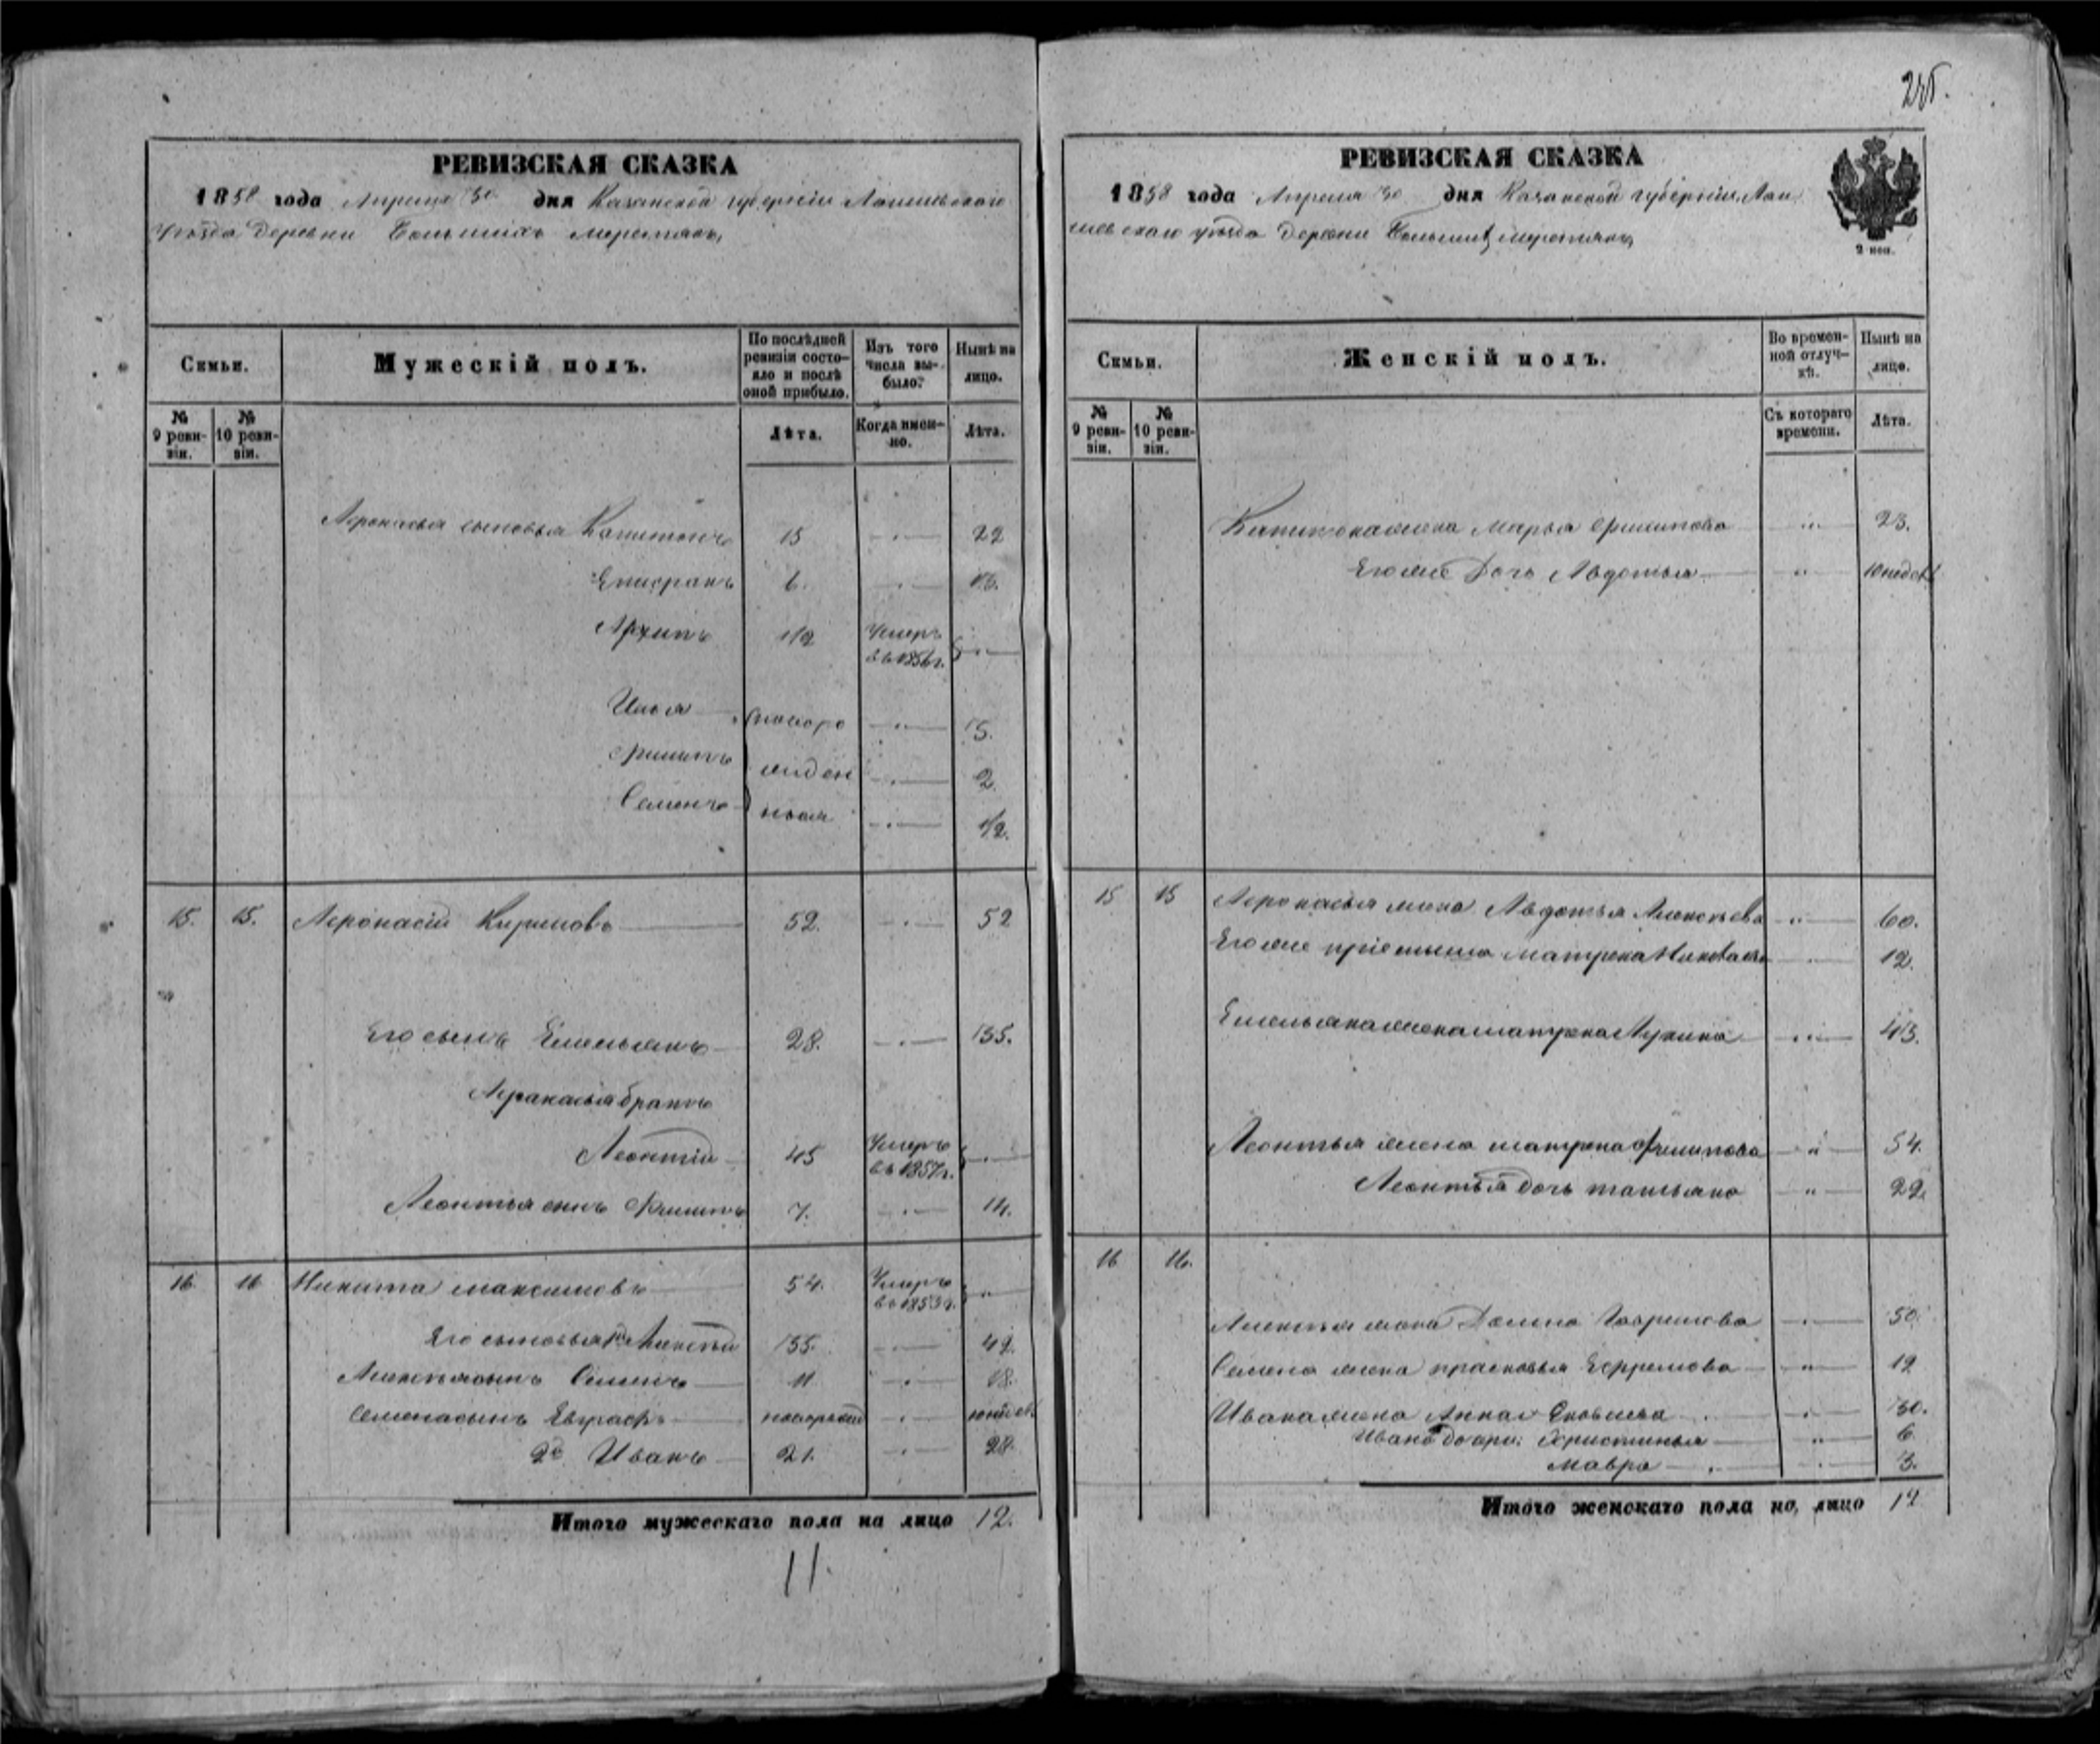 РЕВИЗСКАЯ СКАЗКА
1858 года Апреля 30 дня Казанской губернии Лаишевскаго
уезда Деревни Большихъ
Семьи.
Мужескій полъ.
По послѣдней ревизіи состояло и послѣ оной прибыло.
Изъ того числа выбыло?
Нынѣ на лицо.
№ 9 ревизіи.
№ 10 ревизіи.
Лѣта.
Когда именно.
Лѣта.
Афонасья сыновья Капитонъ 15 22
Епифанъ 6.
Архипъ 1/2 Умеръ въ 1856 г.
Илья новорожденныя 5.
Филипъ 2.
Семенъ 1/2.
15. 15. Афонасій Кириловъ 52. 52
Его сынъ Емельянъ 28. 35.
Афанасья братъ
Леонтій 45 Умеръ въ 1857 г.
Леонтья сынъ Филипъ 7. 14.
16 16 Никита Максимовъ 54. Умеръ въ 1853 г.
Его сыновья 1й Алексѣй 35. 42.
Алексѣя сынъ Семенъ 11 18.
Семена сынъ Евграфъ
2й Иванъ 21. 28.
Итого мужескаго пола на лицо 12.
11.
РЕВИЗСКАЯ СКАЗКА
1858 года Апреля 30 дня Казанской губерніи Лаи
шевскаго уезда Деревни
2 коп.
Семьи.
Женскій полъ.
Во временной отлучкѣ.
Нынѣ на лице.
№ 9 ревизіи.
№ 10 ревизіи.
Съ котораго времени.
Лѣта.
Капитона жена Марья Филипова 23.
Его же Дочь Авдотья 10 недель
15 15 Афонасья жена Авдотья Алексѣева 60.
Его же пріемыша Матрена 12.
Емельяна жена Матрена Лукина 43.
Леонтья жена Матрена Филипова 54.
Леонтья дочь Татьяна 22.
16 16.
Алексѣя жена Домна Гаврилова 50.
Семена жена Прасковья Ефремова 19
Ивана жена Анна Яковлева 30.
Ивана дочри: Христинья 6
Мавра 3.
Итого женскаго пола на лицо 12